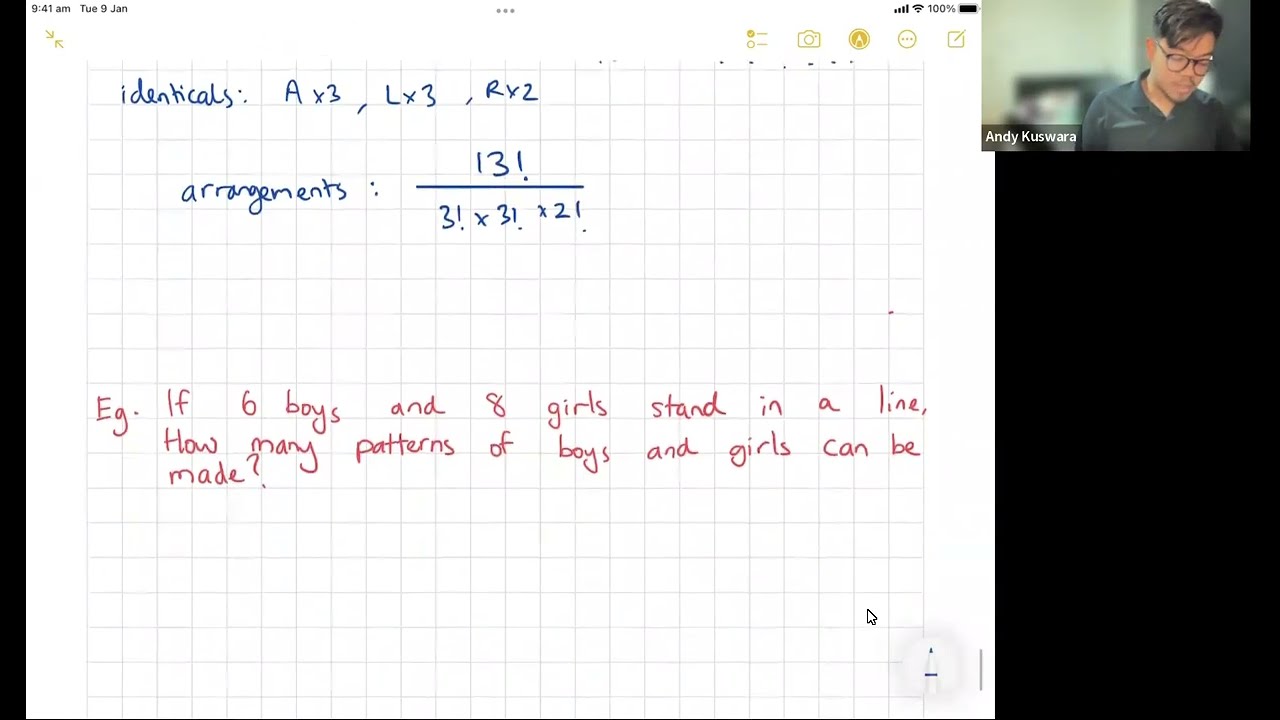 9:41 am Tue 9 Jan
100%
Andy Kuswara
identicals: A x3 , L x3 , R x2
arrangements : 13!
3! x 3! x 2!
Eg. If 6 boys and 8 girls stand in a line,
How many patterns of boys and girls can be
made?